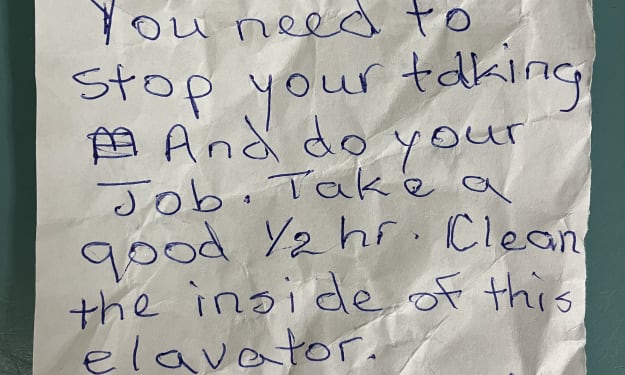 You need to
stop your talking
And do your
Job. Take a
good 1/2 hr. Clean
the inside of this
elavator.